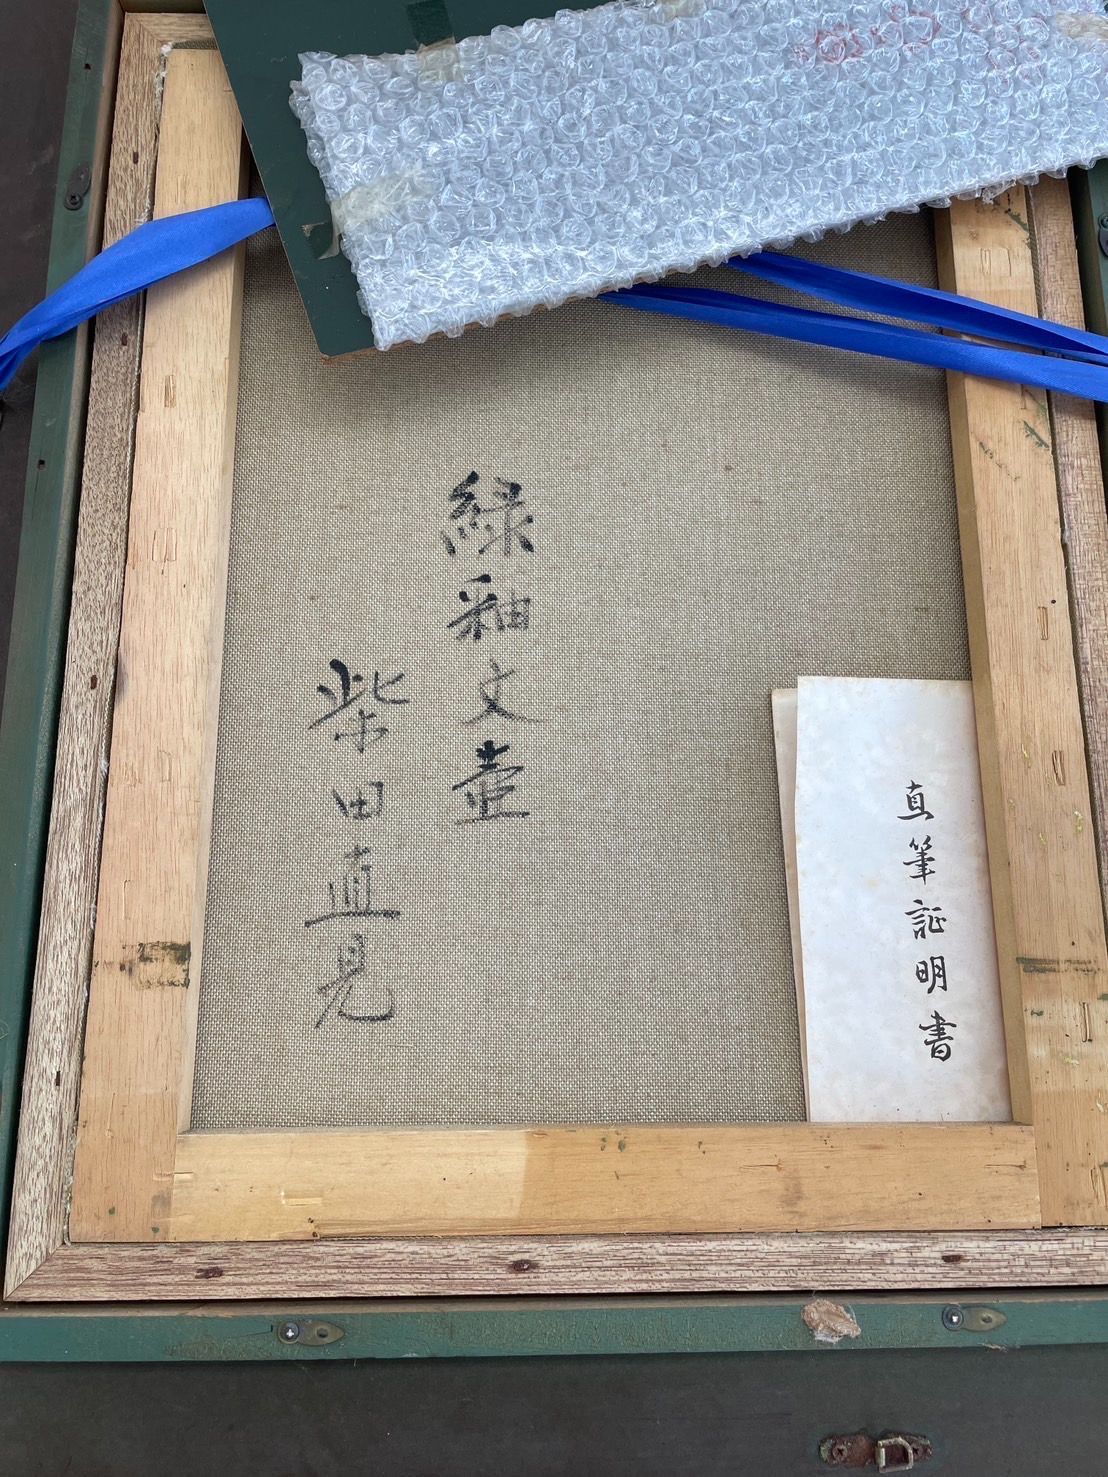 真筆証明書
緑釉文壷
柴田直見